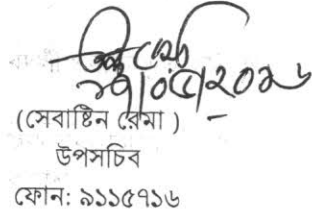 ২৭/০৫/২০১৬
(সেবাষ্টিন রেমা )
উপসচিব
ফোন: ৯১১৫৭১৬